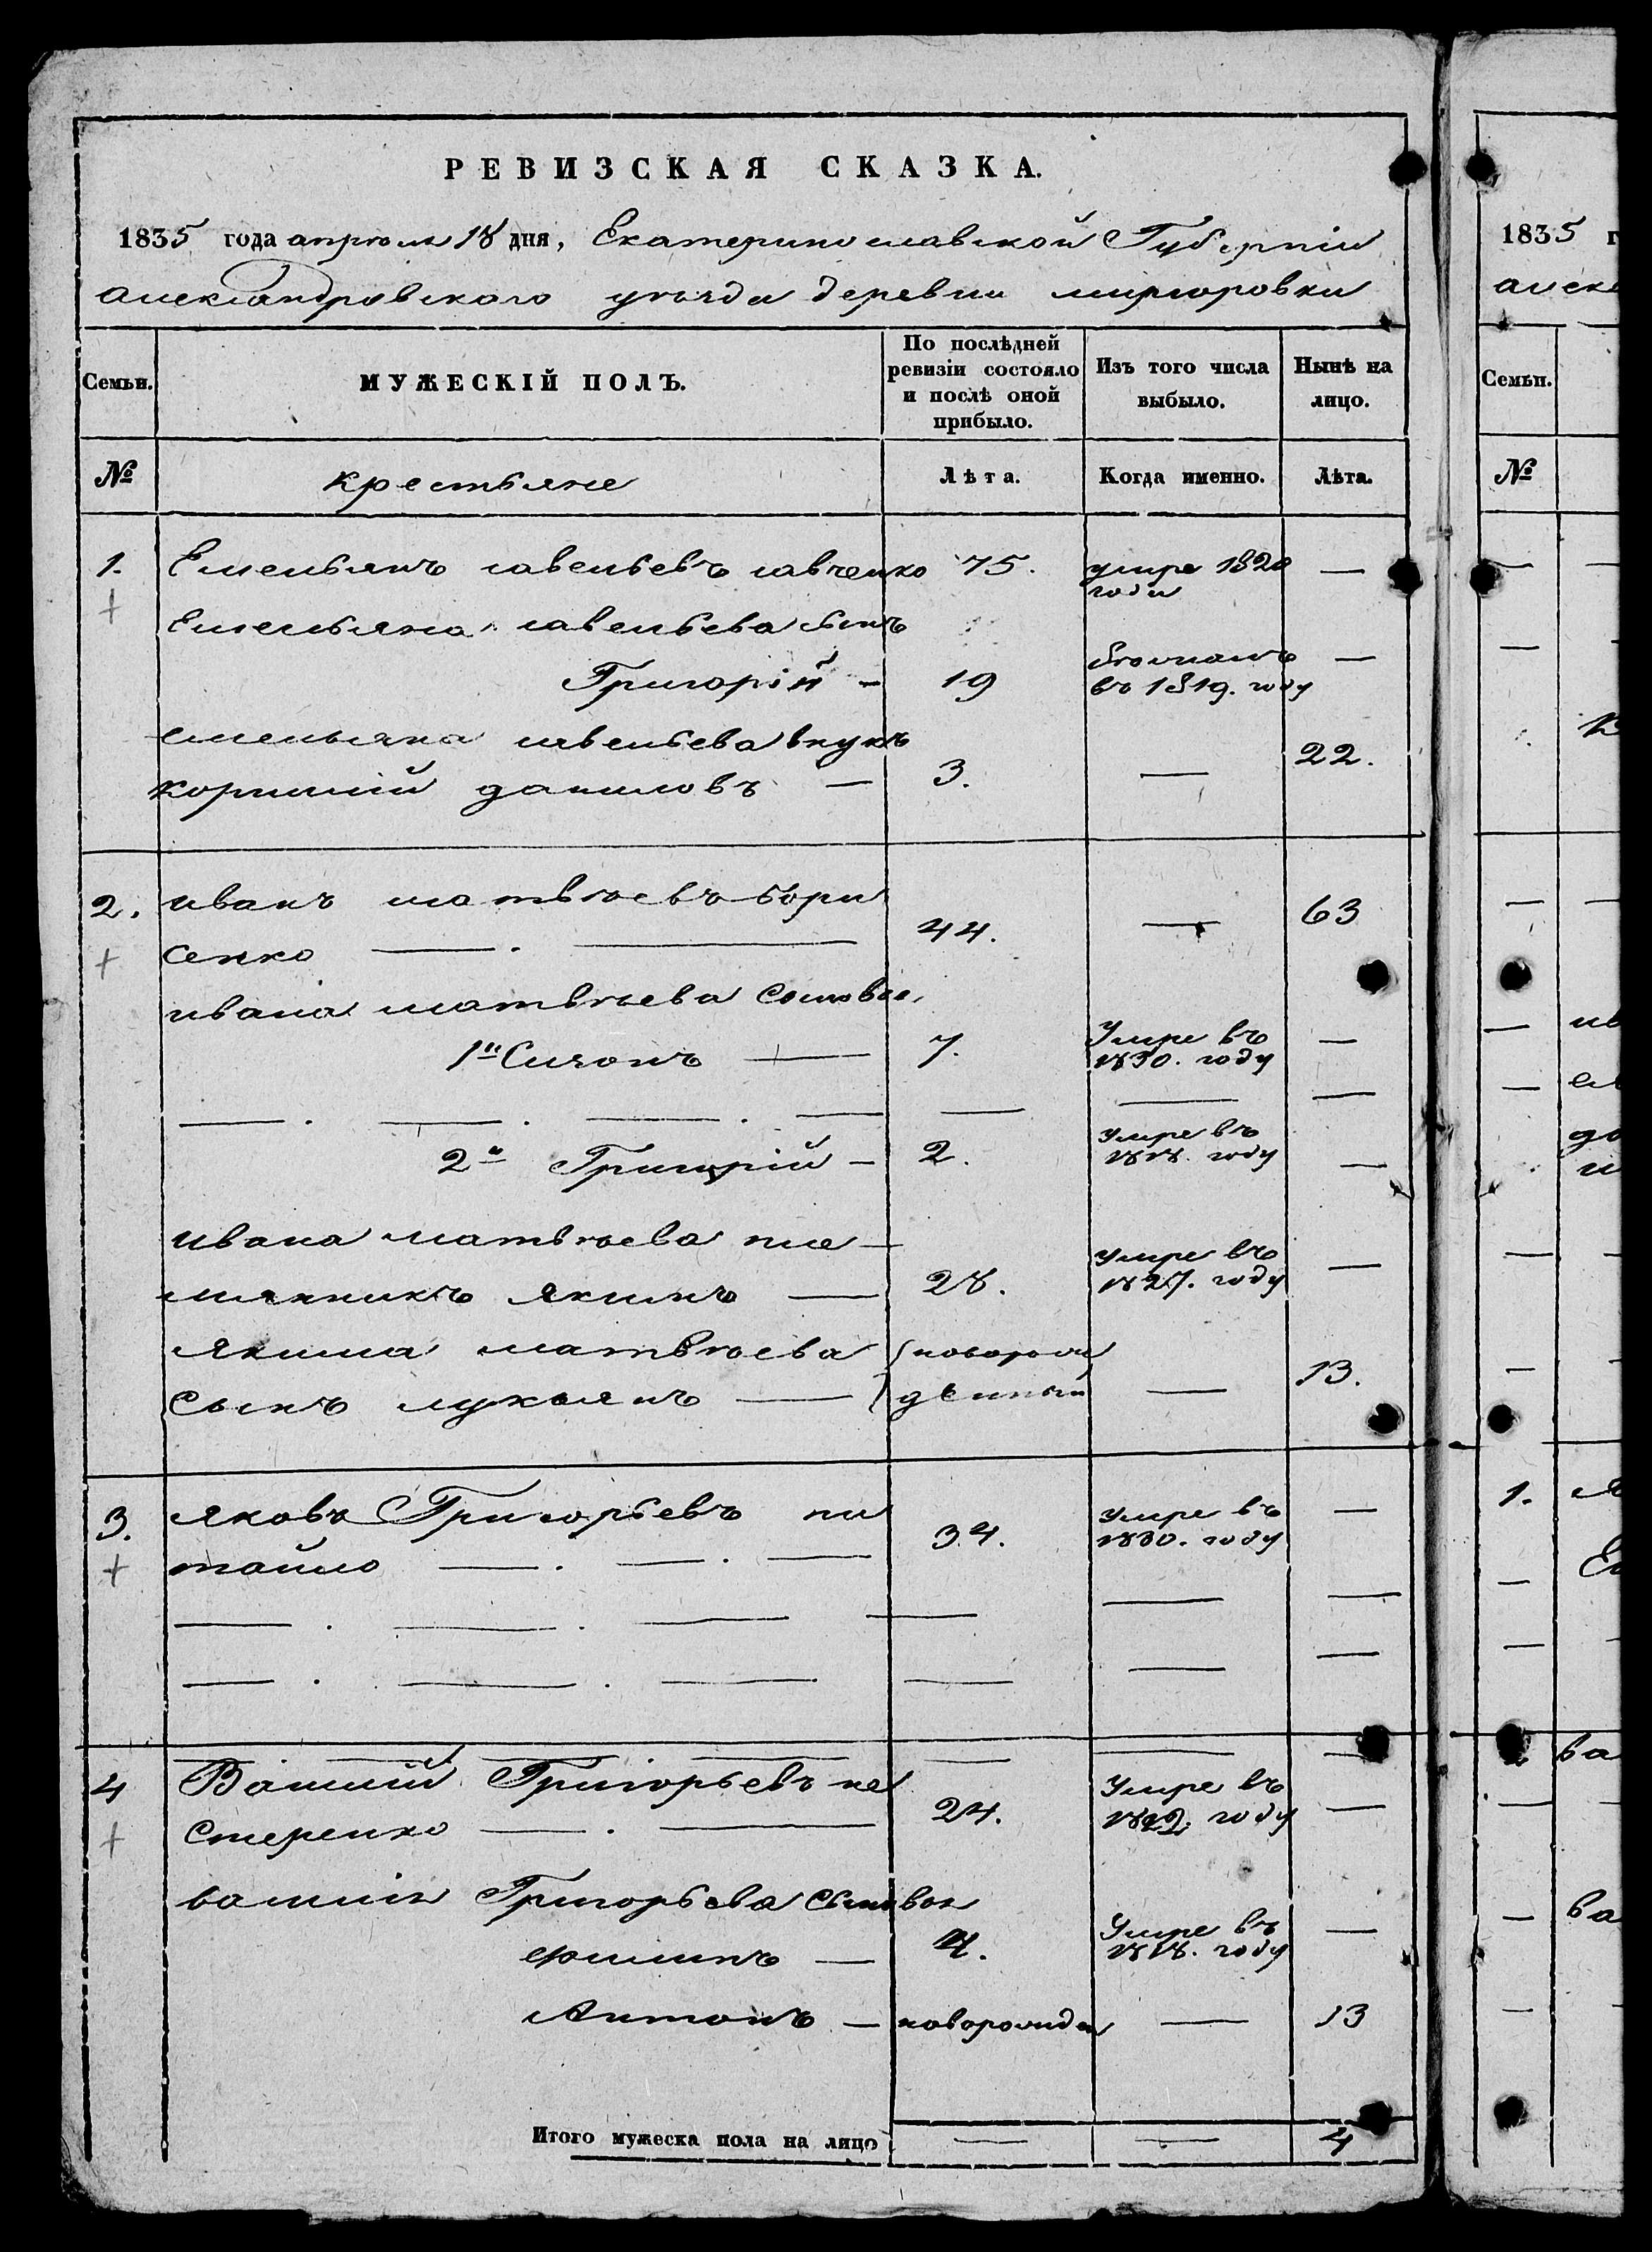 РЕВИЗСКАЯ СКАЗКА.
1835 года апреля 18 дня, Екатеринославской Губернiи
александровского уезда деревни
Семьи.
МУЖЕСКIЙ ПОЛЪ.
По послѣдней ревизiи состояло и послѣ оной прибыло.
Изъ того числа выбыло.
Нынѣ на лицо.
№
крестьяне
Лѣта.
Когда именно.
Лѣта.
1. Емельянъ савельевъ савченко 75. умре 1820 года —
Емельяна савельева сынъ
Григорiй — 19 въ 1819. году —
емельяна савельева внукъ
корнилiй даниловъ — 3. — 22.
2. иванъ матвѣевъ бори
сенко — . — 44. — 63
ивана матвѣева сыновья,
1й Сизонъ — 7. Умре въ 1830. году —
— . — . — . — — — —
2й Григорiй — 2. Умре въ 1818. году —
ивана матвѣева пле —
мянникъ якимъ — 28. умре въ 1827. году —
якима матвѣева новорож
сынъ лукьянъ — денный — 13.
3. яковъ Григорьевъ пи 34. умре въ 1830. году —
тайло — . — . —
— . — . — — — —
— . — . — — — —
4 Василiй Григорьевъ не 24. Умре въ 1822. году —
стеренко — . —
василiя Григорьева сыновья
филипъ — 4. Умре въ 1818. году —
Антонъ — новорожден — 13
Итого мужеска пола на лицо — — 4
1835 г
алекс
Семьи.
№
1.
ва
ва